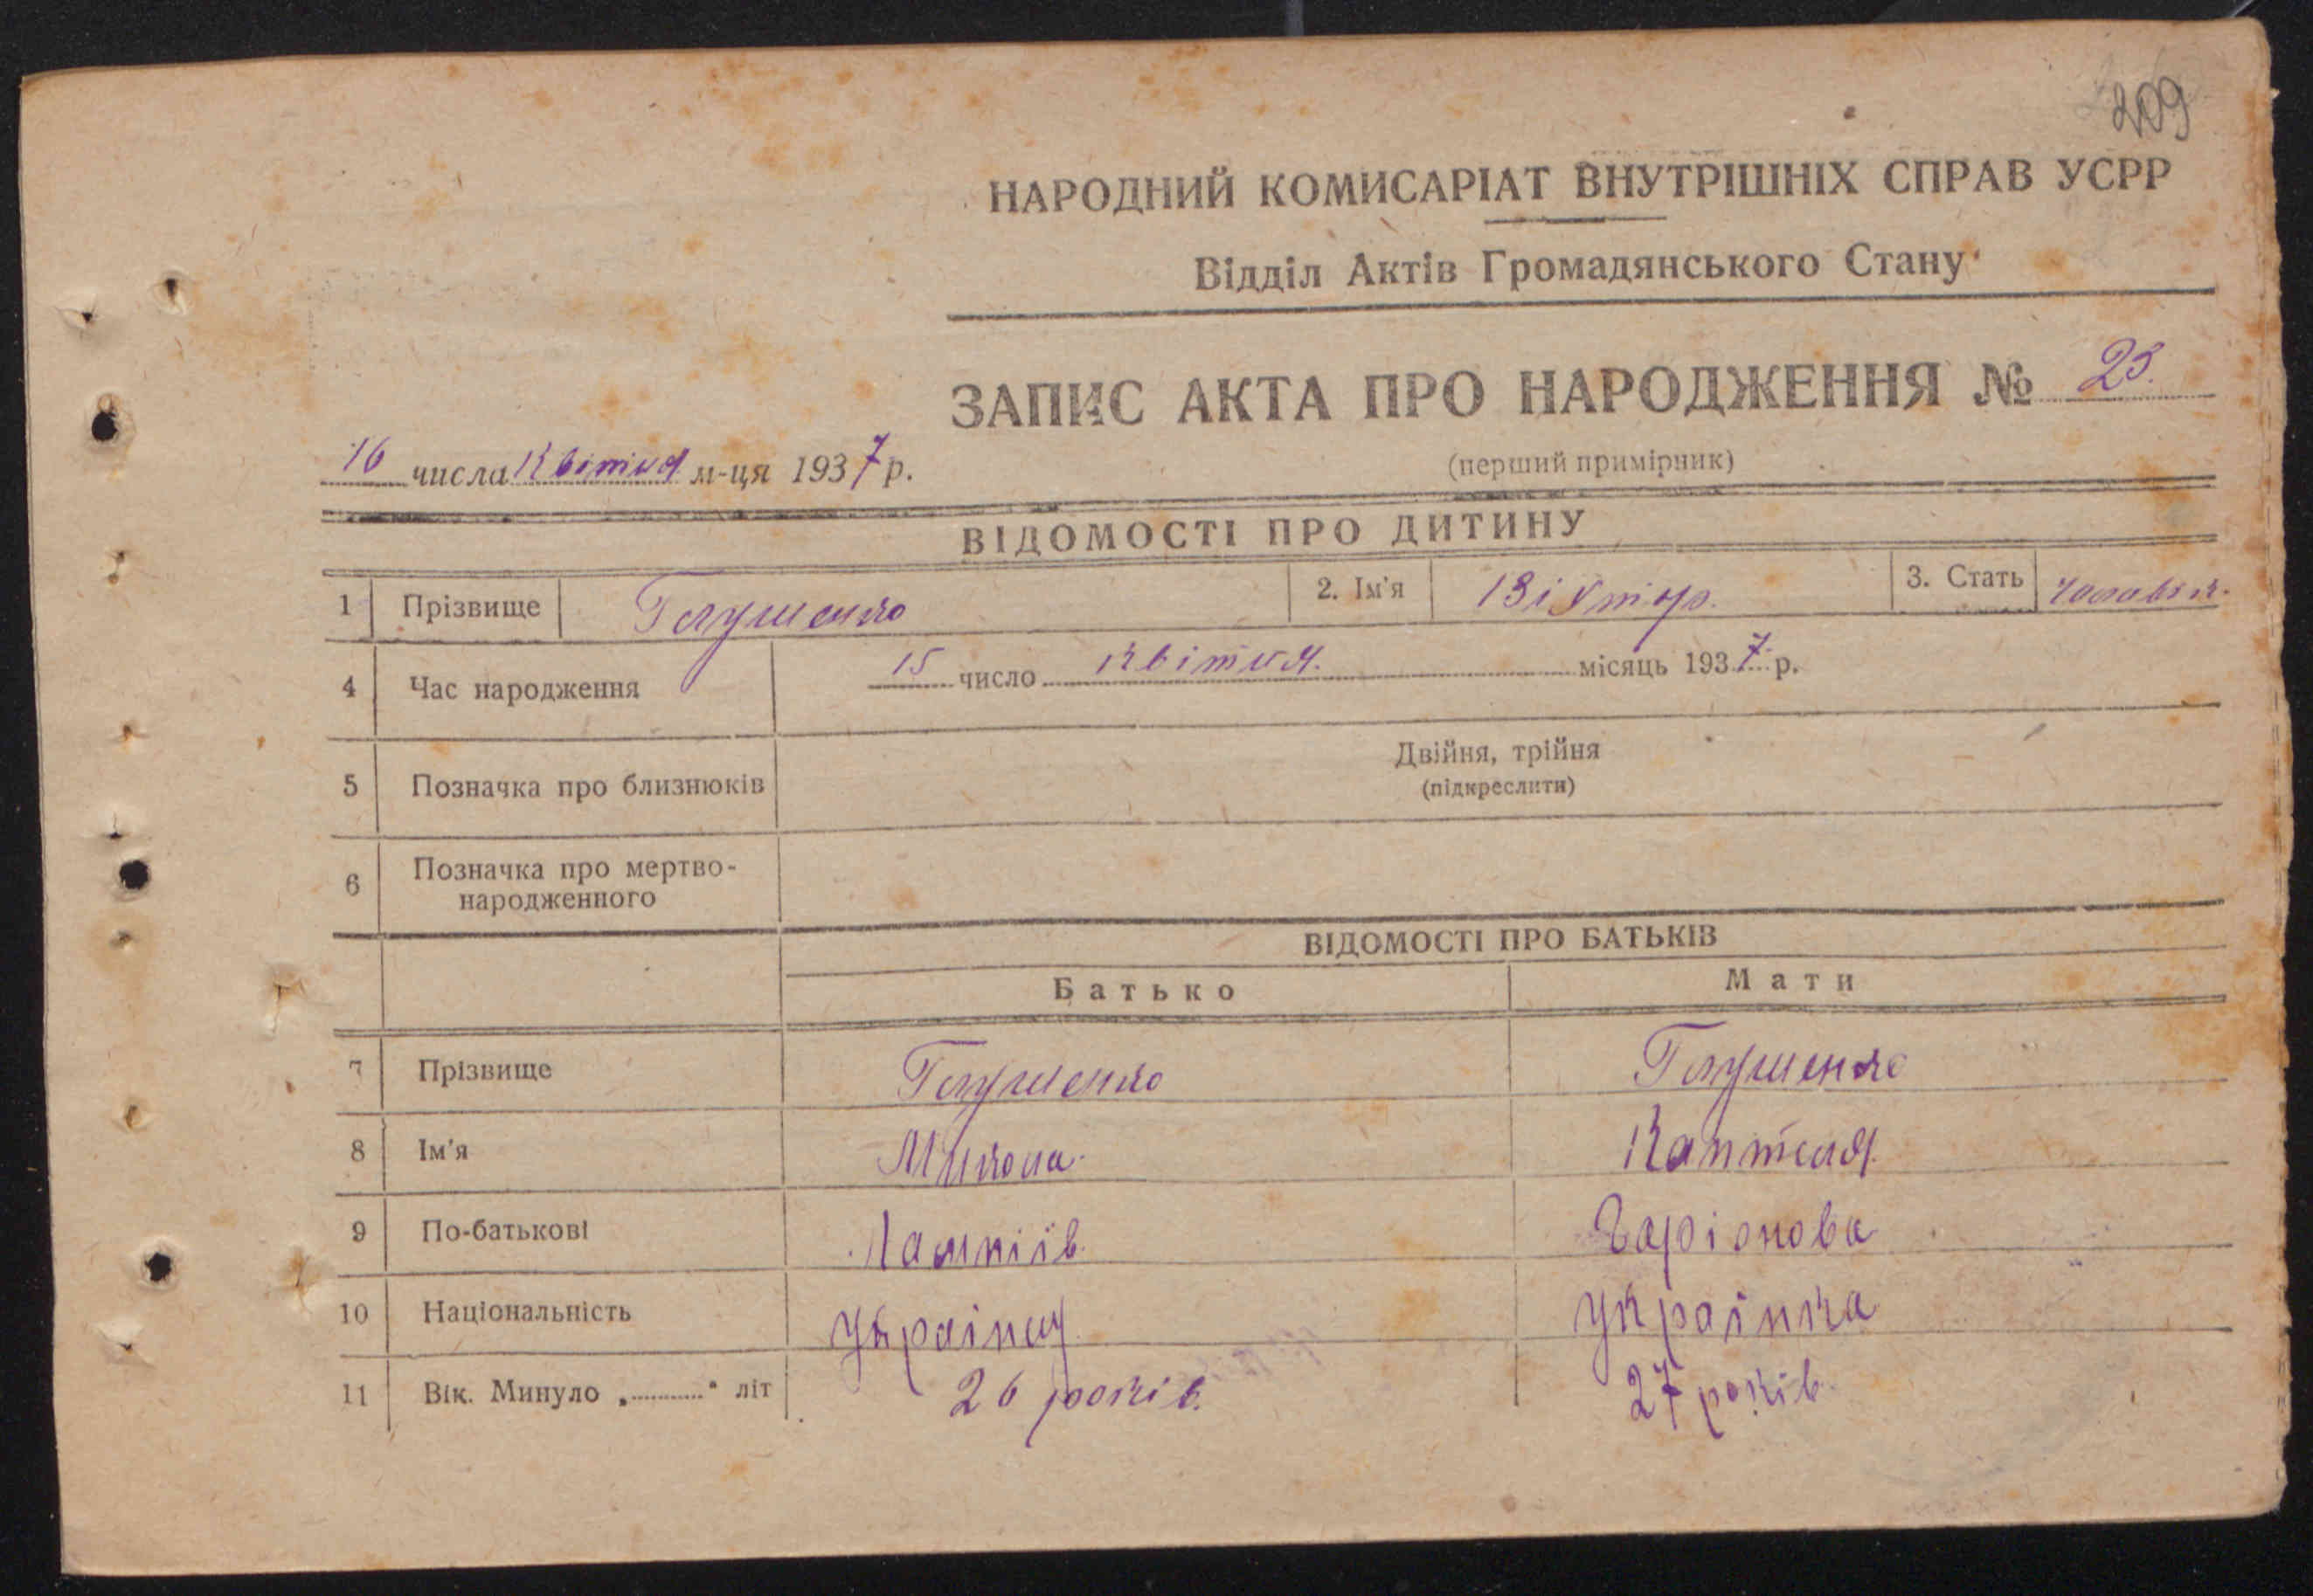 209
НАРОДНИЙ КОМИСАРІАТ ВНУТРІШНІХ СПРАВ УСРР
Відділ Актів Громадянського Стану
ЗАПИС АКТА ПРО НАРОДЖЕННЯ №
16 числа Квітня м-ця 1937 р.
(перший примірник)
ВІДОМОСТІ ПРО ДИТИНУ
1 Прізвище Глушенко 2. Ім'я Віктор. 3. Стать чоловіч.
4 Час народження 15 число квітня. місяць 1937 р.
5 Позначка про близнюків Двійня, трійня
(підкреслити)
6 Позначка про мертво-
народженного
ВІДОМОСТІ ПРО БАТЬКІВ
Батько Мати
7 Прізвище Глушенко Глушенко
8 Ім'я Микола
9 По-батькові
10 Національність Українець Українка
11 Вік. Минуло „............“ літ 26 років. 27 років.